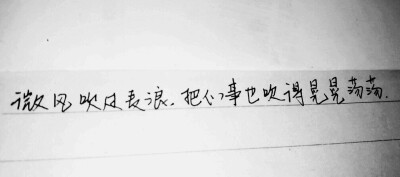 微风吹麦浪，把心事也吹得晃晃荡荡.